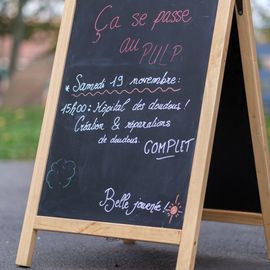 Ça se passe
au PULP
* Samedi 19 novembre :
15h00 : Hôpital des doudous !
Création & réparations
de doudous.
COMPLET
Belle journée !